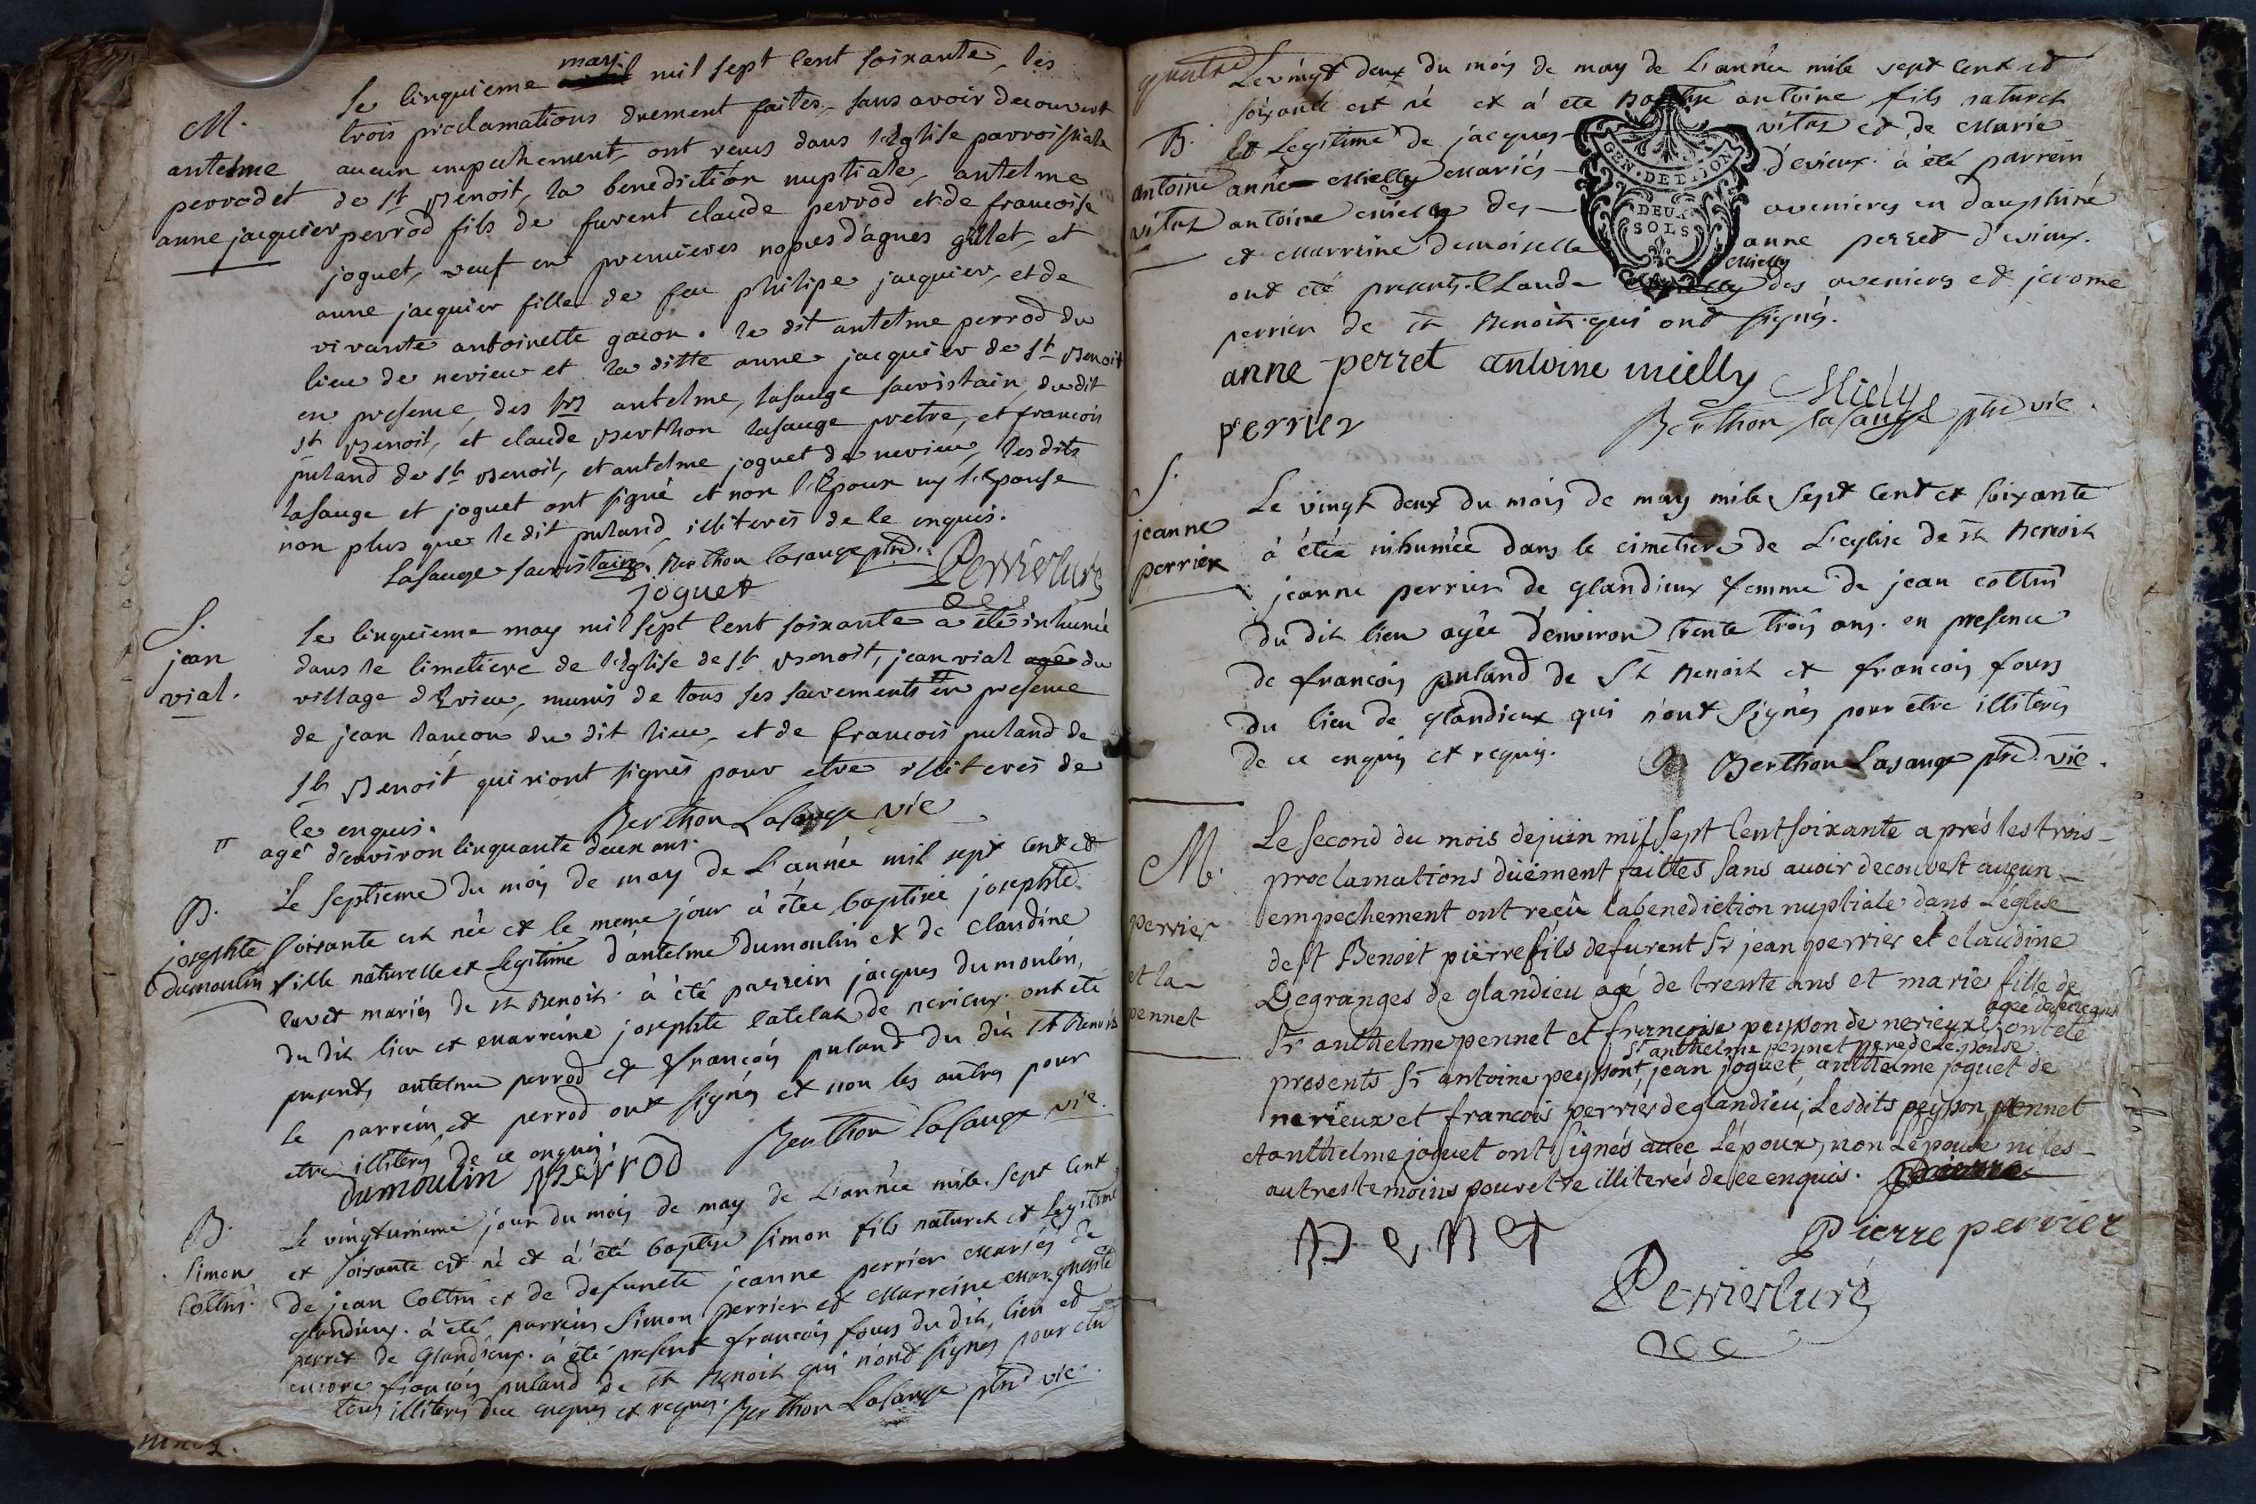 M.
antelme
perrod et
anne jacquier
le cinquieme may mil sept cent soixante, les
trois proclamations duement faites, sans avoir decouvert
aucun empechement, ont reçus dans l'Eglise parroissiale
de st Benoit, la benediction nuptiale, antelme
perrod fils de furent claude perrod et de francoise
joguet, veuf en premieres nopces d'agnes gillet, et
anne jacquier fille de feu philipe jacquier, et de
vivante antoinette gacon. le dit antelme perrod du
lieu de nerieu et la ditte anne jacquier de st Benoit
en presence, des srs antelme, lasauge sacristain, du dit
st Benoit, et claude Berthon lasauge pretre, et francois
puland de st Benoit, et antelme joguet de nerieu, les dits
lasauge et joguet ont signé et non l'Epoux ny l'Epouse
non plus que le dit puland, illiterés de le enquis.
Lasauge sacristain. Berthon lasauge ptre. Perrier curé
joguet
S.
jean
vial.
le cinquieme may mil sept cent soixante a été inhumé
dans le cimetiere de l'Eglise de st Benoit, jean vial agé du
village d'Evieu, munis de tous ses sacrements en presence
de jean lancon du dit lieu, et de francois puland de
st Benoit qui n'ont signés pour etre illiterés de
ce enquis. Berthon Lasauge vic
agé d'environ cinquante deux ans.
B.
josephte
dumoulin
Le septieme du mois de may de L'année mil sept cent et
soixante est née et le meme jour à étée baptisée josephte
fille naturelle et legitime d'antelme dumoulin et de claudine
cuvet mariés de st Benoit. à été parrein jacques dumoulin,
du dit lieu et marreine josephte catelat de nerieux. ont été
presents antelme perrod et françois puland du dit st Benoit
le parrein et perrod ont signés et non les autres pour
etre illiterés de ce enquis.
dumoulin perrod Berthon lasauge vic.
B.
Simon
Cottin.
Le vingtunieme jour du mois de may de L'année mile sept cent
et soixante est né et à été baptisé simon fils naturel et legitime
de jean Cottin et de defuncte jeanne perrier mariés de
glandieux. à été parrein simon perrier et marreine marguerite
perret de Glandieux. à été present françois fours du dit lieu et
encore françois puland de st Benoit qui n'ont signés pour etre
tous illiterés de ce enquis et requis. Berthon Lasauge ptre vic.
quatre
B.
antoine
vitoz
Le vingt deux du mois de may de L'année mile sept cent et
soixante est né et à été baptisé antoine fils naturel
et Legitime de jacques vitoz et de marie
anne mielly mariés d'evieux. à été parrein
antoine mielly des avenieres en dauphiné
et marreine demoiselle anne perret d'evieux.
ont été presents Claude mielly des avenieres et jerome
perrier de st Benoit. qui ont signés.
GEN. DE DIJON
DEUX
SOLS
anne perret antoine mielly Miely
perrier Berthon lasauge ptre vic.
S.
jeanne
perrier
Le vingt deux du mois de may mile sept cent et soixante
à étée inhumée dans le cimetiere de L'eglise de st Benoit
jeanne perrier de glandieux femme de jean cottin
du dit lieu agée d'environ trente trois ans. en presence
de françois puland de st Benoit et françois fours
du lieu de glandieux qui n'ont signés pour etre illiterés
de ce enquis et requis. Berthon Lasauge ptre vic.
M.
perrier
et la
pennet
Le second du mois de juin mil sept cent soixante aprés les trois
proclamations duëment faittes sans avoir decouvert aucun
empechement ont reçû la benediction nuptiale dans L'eglise
de st Benoit pierre fils de furent sr jean perrier et claudine
Degranges de glandieu agé de trente ans et marie fille de
sr anthelme pennet et françoise peysson de nerieux ont été
sr anthelme pennet pere de L'epouse
presents sr antoine peysson, jean joguet, anthelme joguet de
nerieux et francois perrier de glandieu; Lesdits peysson, pennet
et anthelme joguet ont signés avec L'époux, non L'epouse ni les
autres temoins pour etre illiterés de ce enquis.
penet Pierre perrier
Perrier curé